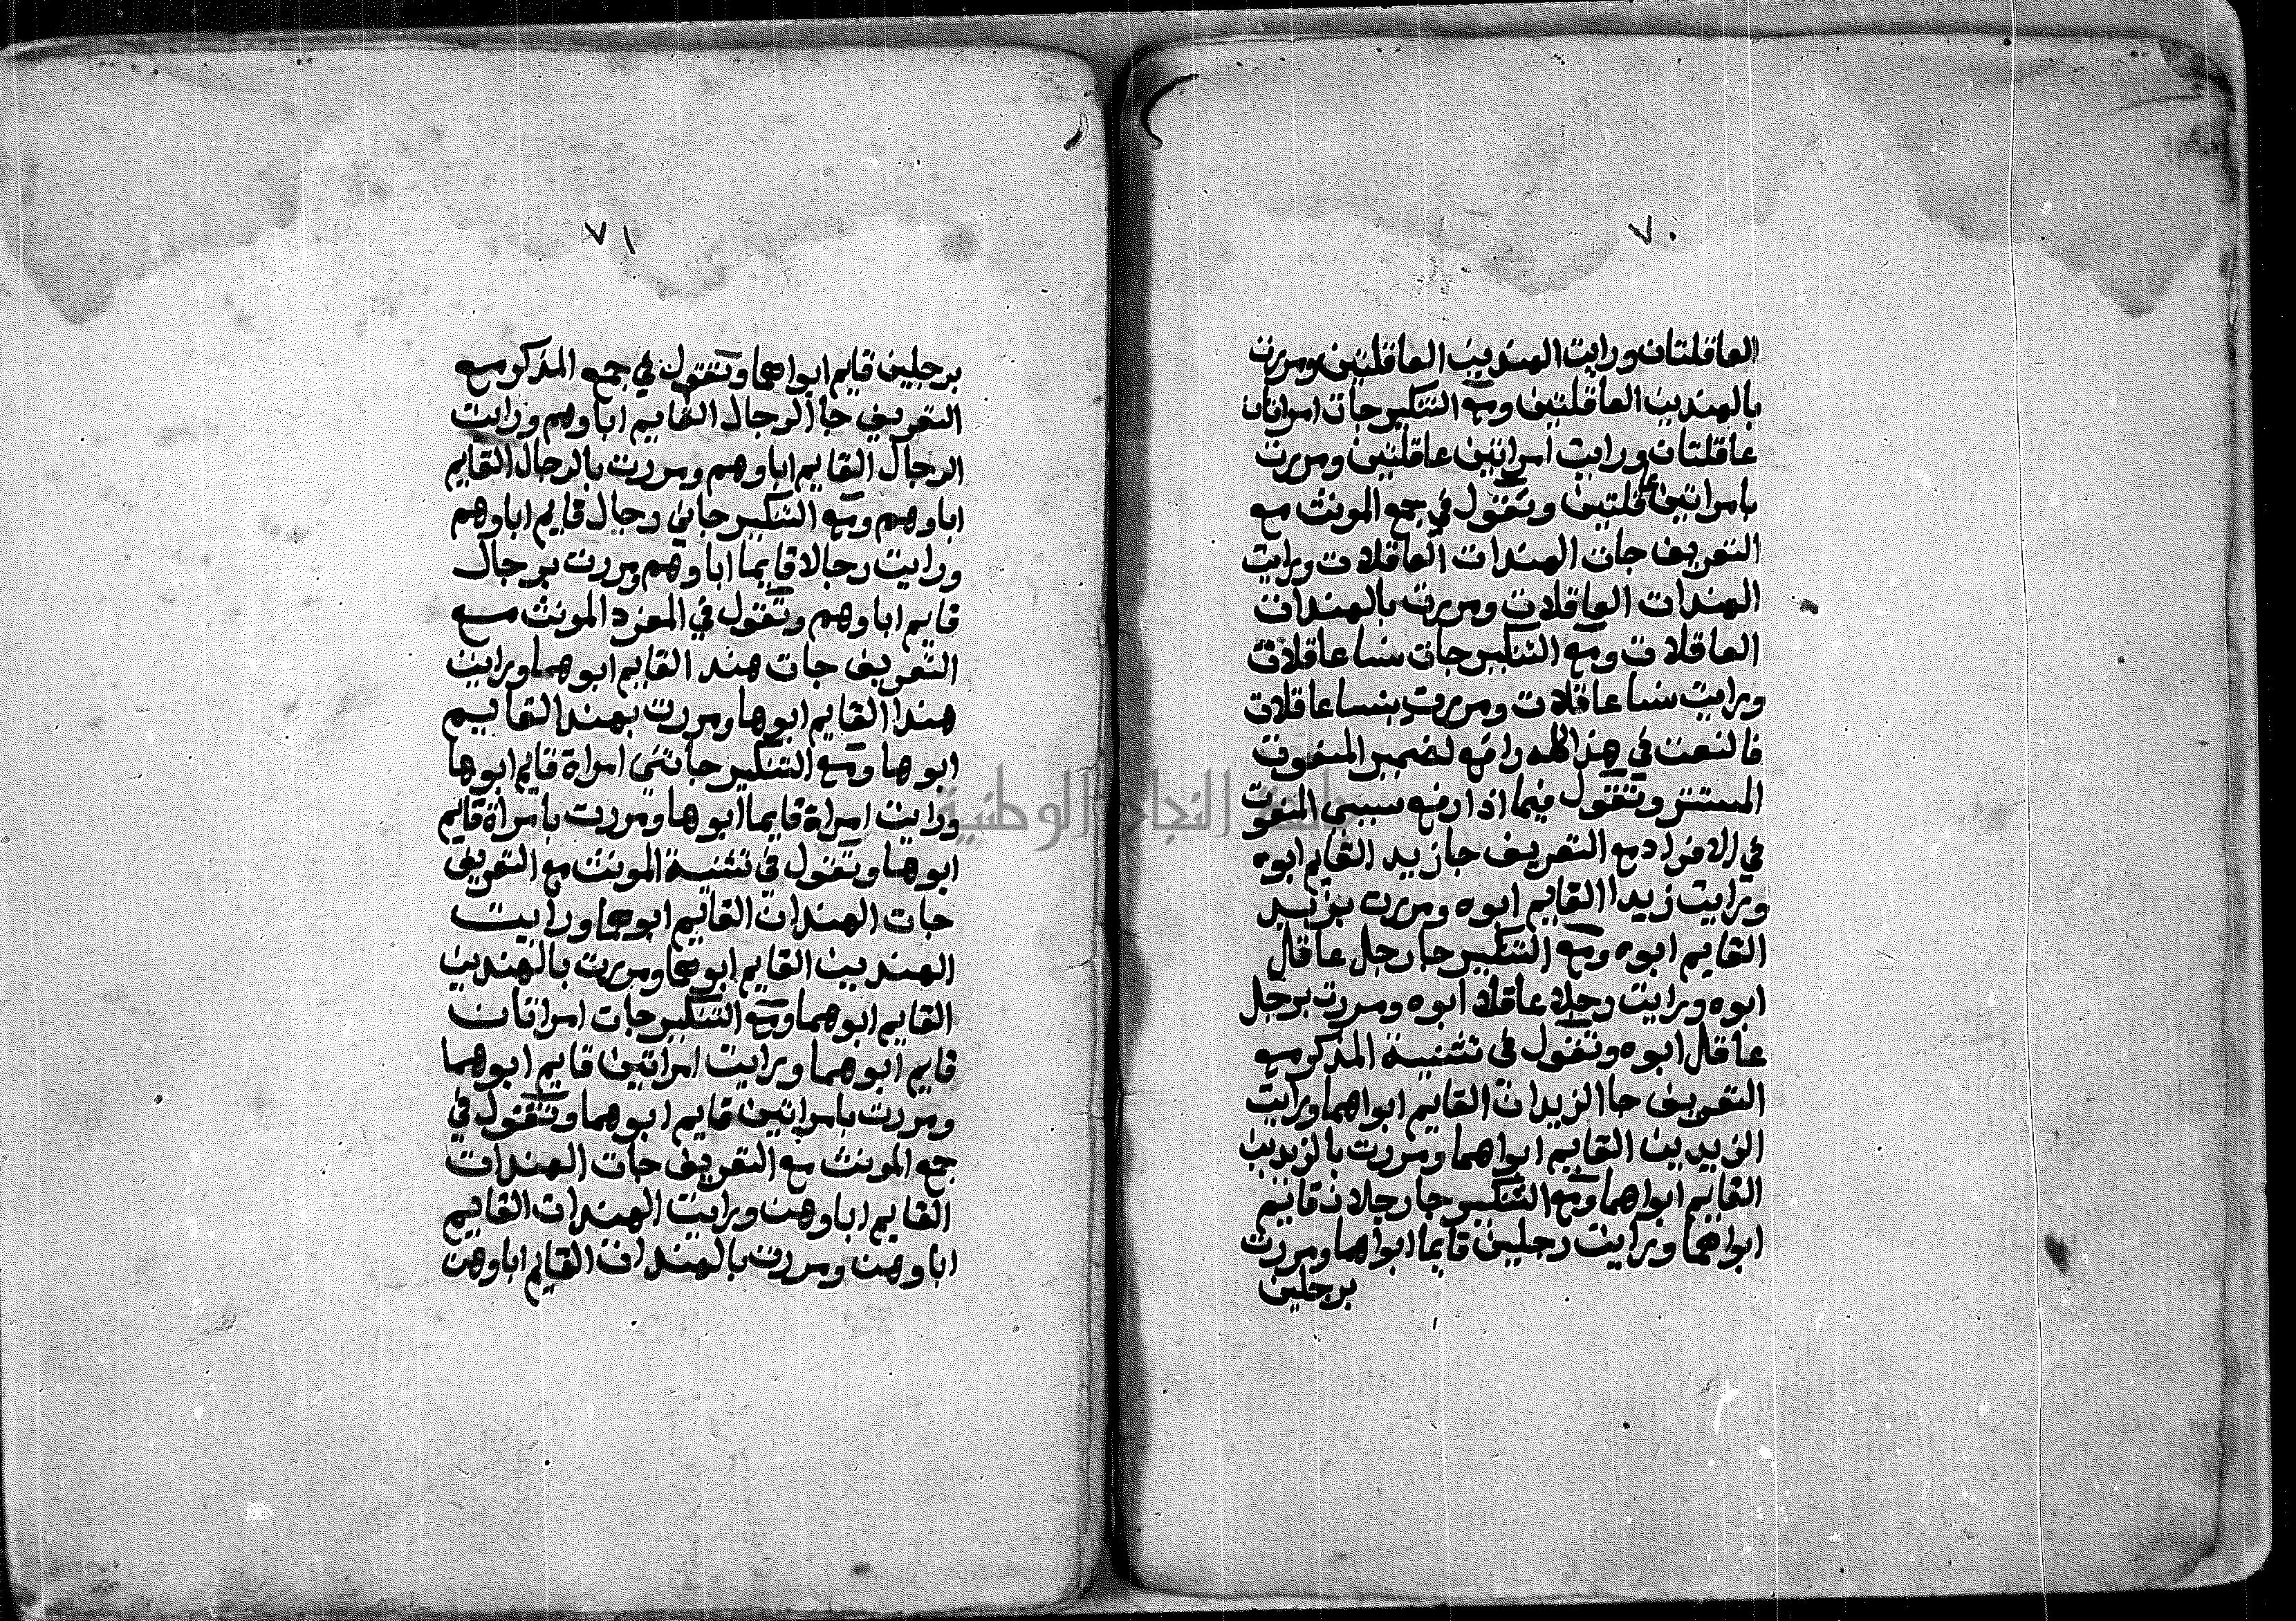 ٧٠
العاقلتان ورايت الهندين العاقلتين ومررت
بالهندين العاقلتين ومع التنكير جات امراتان
عاقلتان ورايت امراتين عاقلتين ومررت
بامراتين عاقلتين وتقول في جمع المونث مع
التعريف جات الهندات العاقلات ورايت
الهندات العاقلات ومررت بالهندات
العاقلات ومع التنكير جات نسا عاقلات
ورايت نسا عاقلات ومررت بنسا عاقلات
فالنعت في هذا كله رافع لضمير المنعوت
المستتر وتقول فيما اذا رفع سببي المنعوت
في الافراد مع التعريف جا زيد القايم ابوه
ورايت زيدا القايم ابوه ومررت بزيد
القايم ابوه ومع التنكير جا رجل عاقل
ابوه ورايت رجلا عاقلا ابوه ومررت برجل
عاقل ابوه وتقول في تثنية المذكر مع
التعريف جا الزيدان القايم ابواهما ورايت
الزيدين القايم ابواهما ومررت بالزيدين
القايم ابواهما ومع التنكير جا رجلان قايم
ابواهما ورايت رجلين قايما ابواهما ومررت
برجلين
٧١
برجلين قايم ابواهما وتقول في جمع المذكر مع
التعريف جا الرجال القايم اباوهم ورايت
الرجال القايم اباوهم ومررت بالرجال القايم
اباوهم ومع التنكير جاني رجال قايم اباوهم
ورايت رجالا قايما اباوهم ومررت برجال
قايم اباوهم وتقول في المفرد المونث مع
التعريف جات هند القايم ابوهما ورايت
هندا القايم ابوها ومررت بهند القايم
ابوها ومع التنكير جاتني امراة قايم ابوها
ورايت امراة قايما ابوها ومررت بامراة قايم
ابوها وتقول في تثنية المونث مع التعريف
جات الهندان القايم ابوهما ورايت
الهندين القايم ابوهما ومررت بالهندين
القايم ابوهما ومع التنكير جات امراتان
قايم ابوهما ورايت امراتين قايم ابوهما
ومررت بامراتين قايم ابوهما وتقول في
جمع المونث مع التعريف جات الهندات
القايم اباوهن ورايت الهندات القايم
اباوهن ومررت بالهندات القايم اباوهن
جامعة النجاح الوطنية